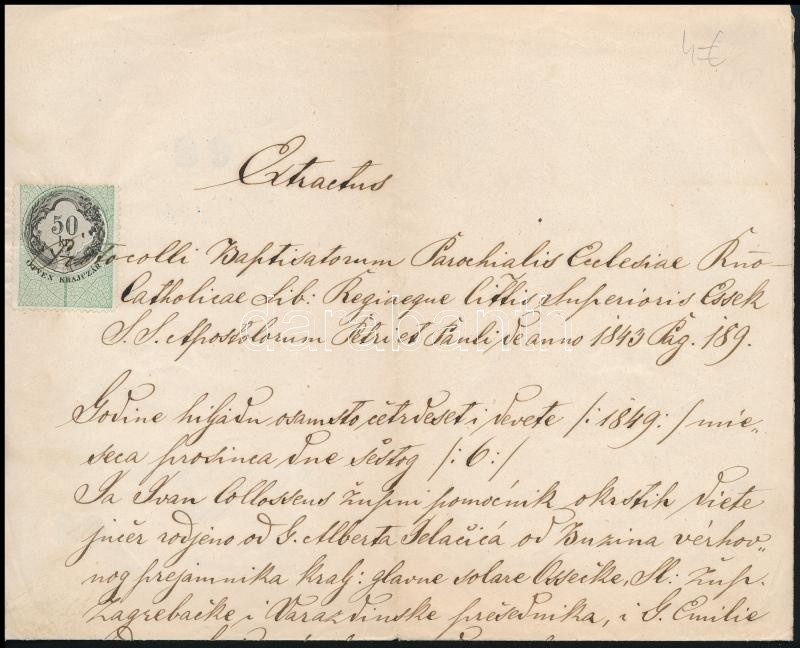 4€
Extractus
50
kr
ÖTVEN KRAJCZÁR
Protocolli Baptisatorum Parochialis Ecclesiae Rno
Catholicae Lib: Regiaeque Cittis Superioris Essek
S. S. Apostolorum Petri et Pauli de anno 1843 Pag. 189.
Godine hiljadu osamsto četrdeset i devete /: 1849 :/ mie„
seca prosinca dne šestog /: 6 :/
Ja Ivan Collossens župni pomoćnik okrstih diete
jučer rodjeno od G. Alberta Jelačića od Buzina vérhov„
nog prejamnika kralj: glavne solare Ossečke, Sl: Žup.
Zagrebačke i Varaždinske présednika, i G. Emilie
darabanth